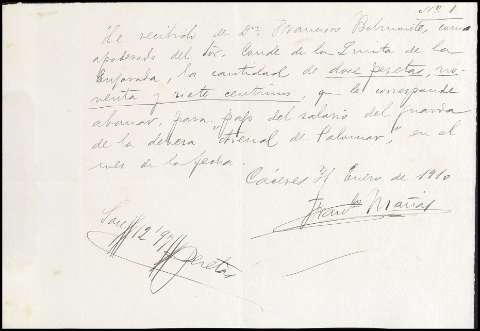 Nº 1
He recibido de Dn. Francisco Belmonte, como
apoderado del Sor. Conde de la Quinta de la
Enjarada, la cantidad de doce pesetas, no-
venta y siete centimos, que le corresponde
abonar, para pago del salario del guarda
de la dehesa "Arenal de Palomar," en el
mes de la fecha.
Cáceres 31 Enero de 1910
Son # 12'97 # pesetas